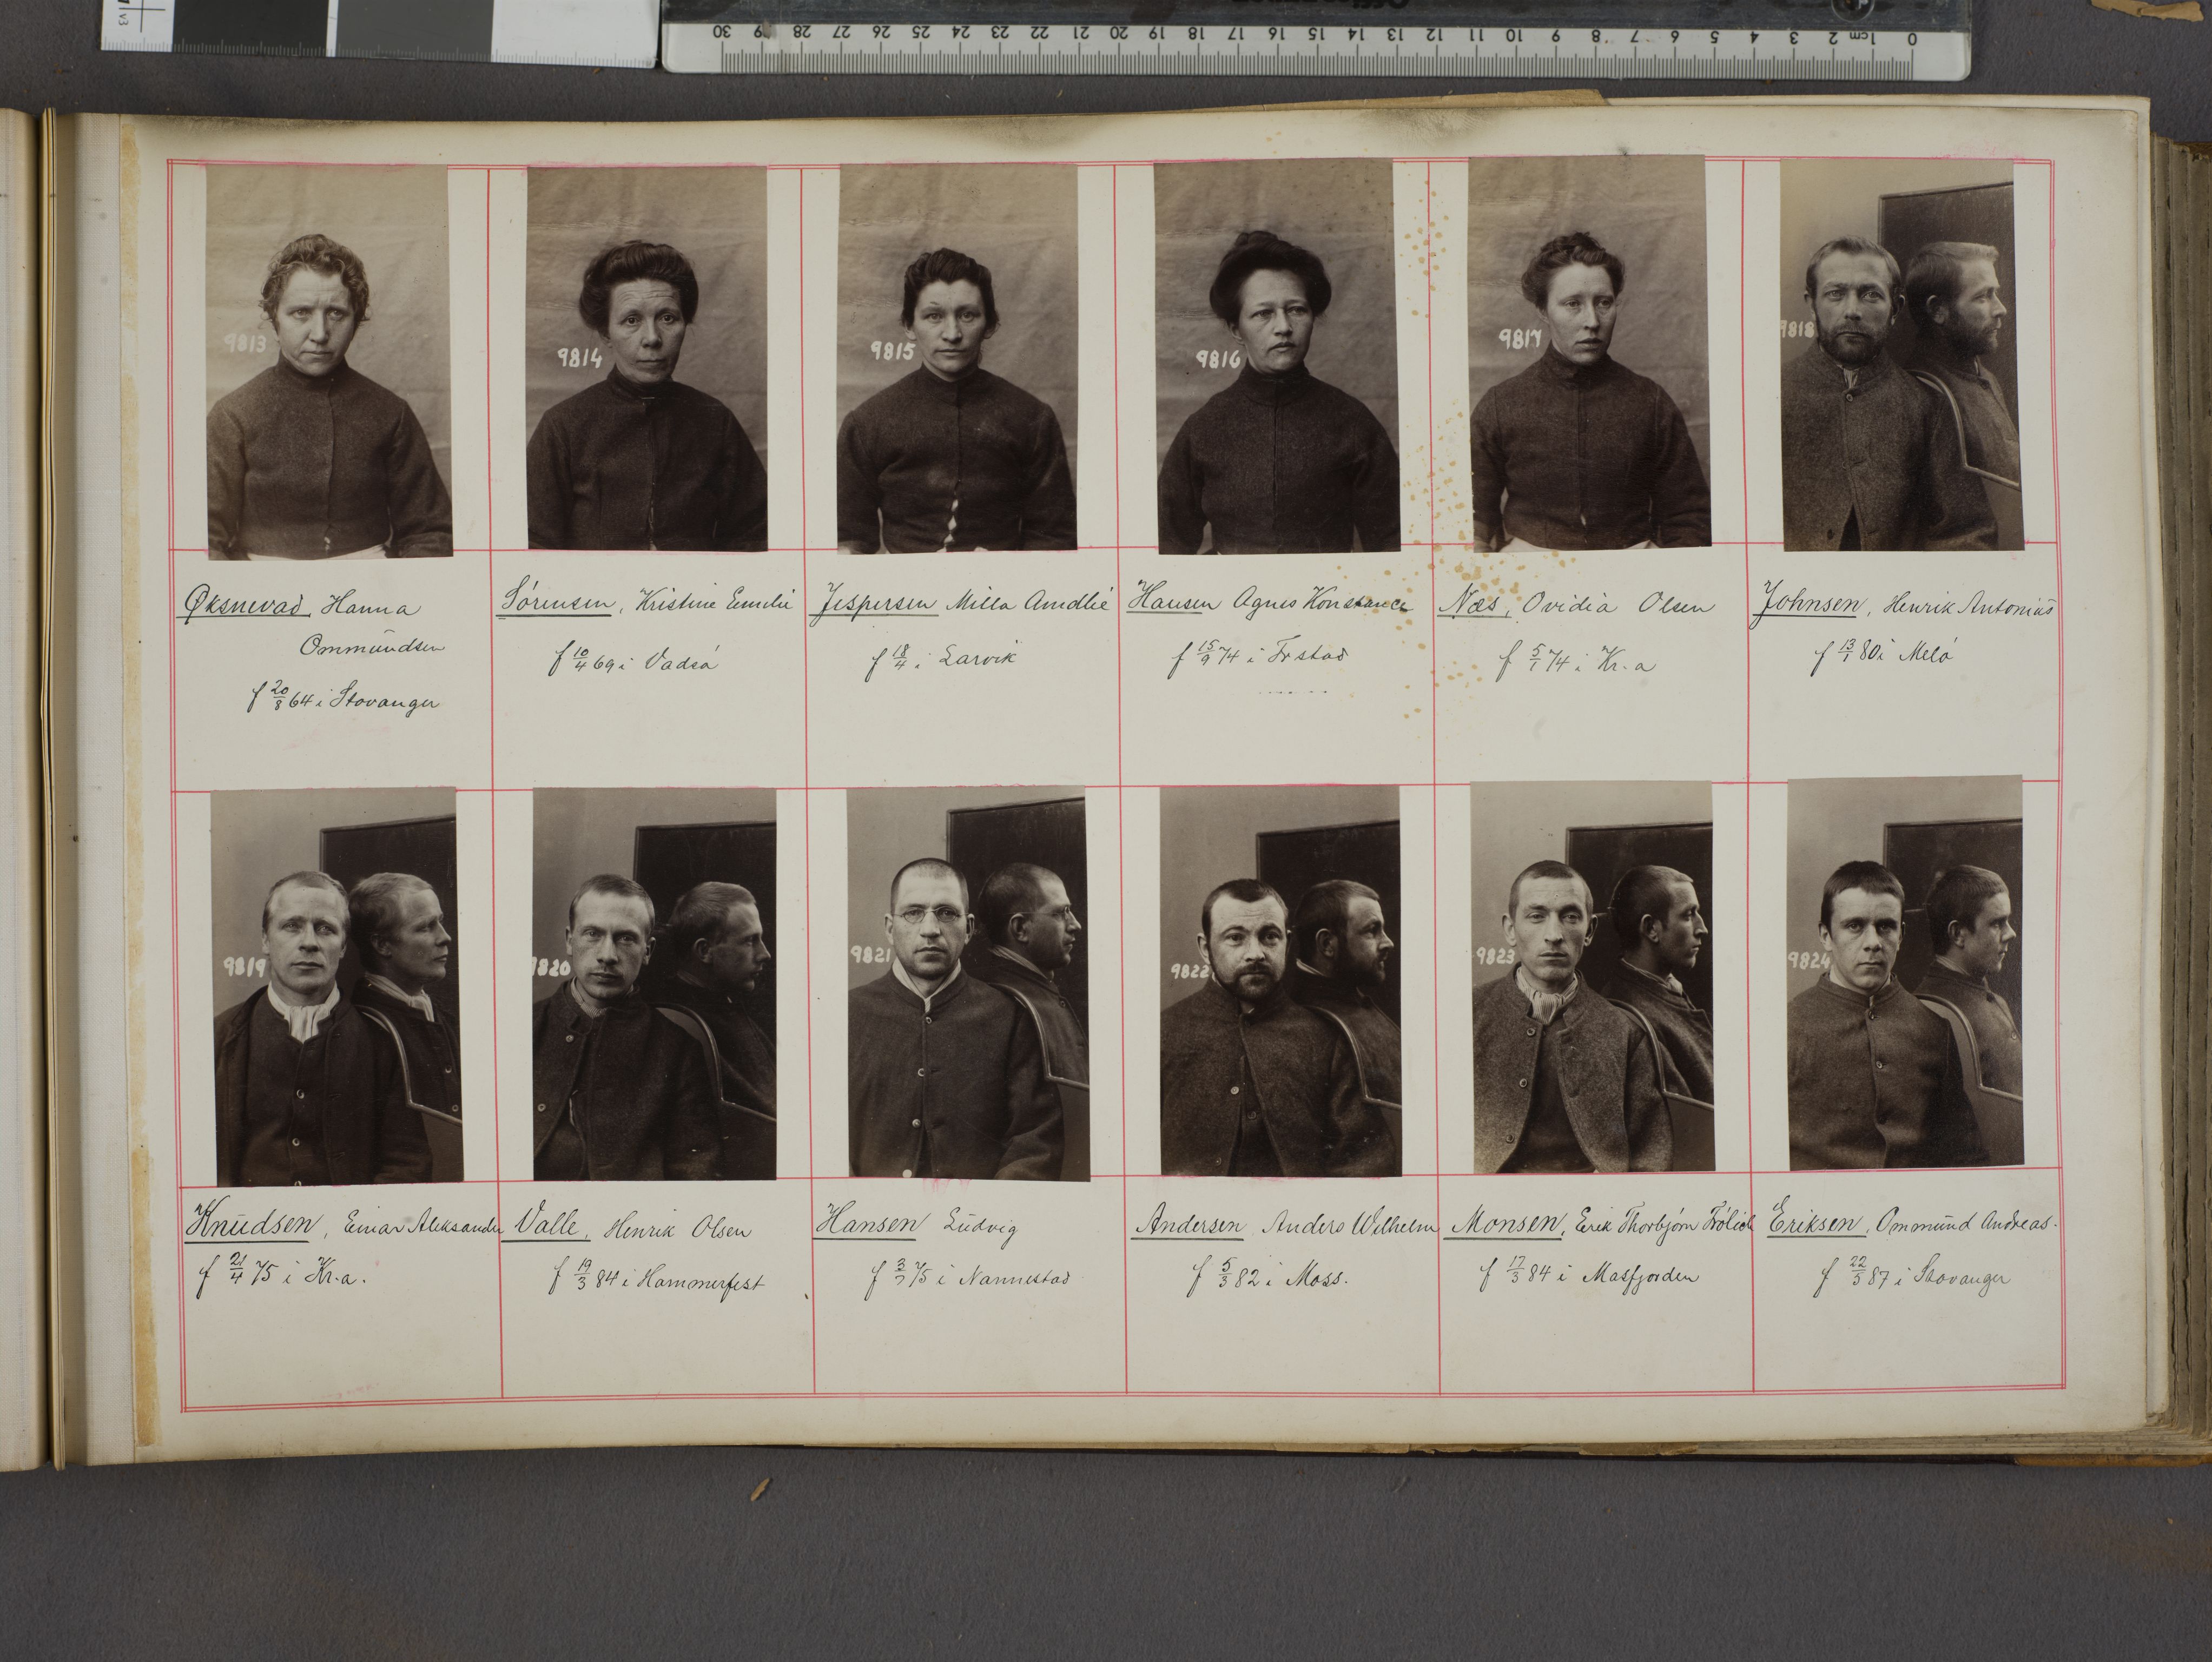 30 29 28 27 26 25 24 23 22 21 20 19 18 17 16 15 14 13 12 11 10 9 8 7 6 5 4 3 2 1cm 0
9813
9814
9815
9816
9817
9818
Øksnevad, Hanna
Ommundsen
f 20/8 64 i Stavanger
Sørensen, Kristine Emilie
f 10/4 69 i Vadsø
Jespersen Milla Amalie
f 18/4 i Larvik
Hansen Agnes Konstance
f 15/9 74 i Frstad
Næs, Ovidia Olsen
f 5/1 74 i Kr.a
Johnsen, Henrik Antonius
f 13/1 80 i Melö
9819
9820
9821
9822
9823
9824
Knudsen, Einar Aleksander
f 21/4 75 i Kr.a.
Valle, Henrik Olsen
f 19/3 84 i Hammerfest
Hansen Ludvig
f 3/7 75 i Nannestad
Andersen Anders Wilhelm
f 5/3 82 i Moss.
Monsen, Erik Thorbjørn Frölich
f 17/3 84 i Masfjorden
Eriksen, Ommund Andreas.
f 22/5 87 i Stavanger